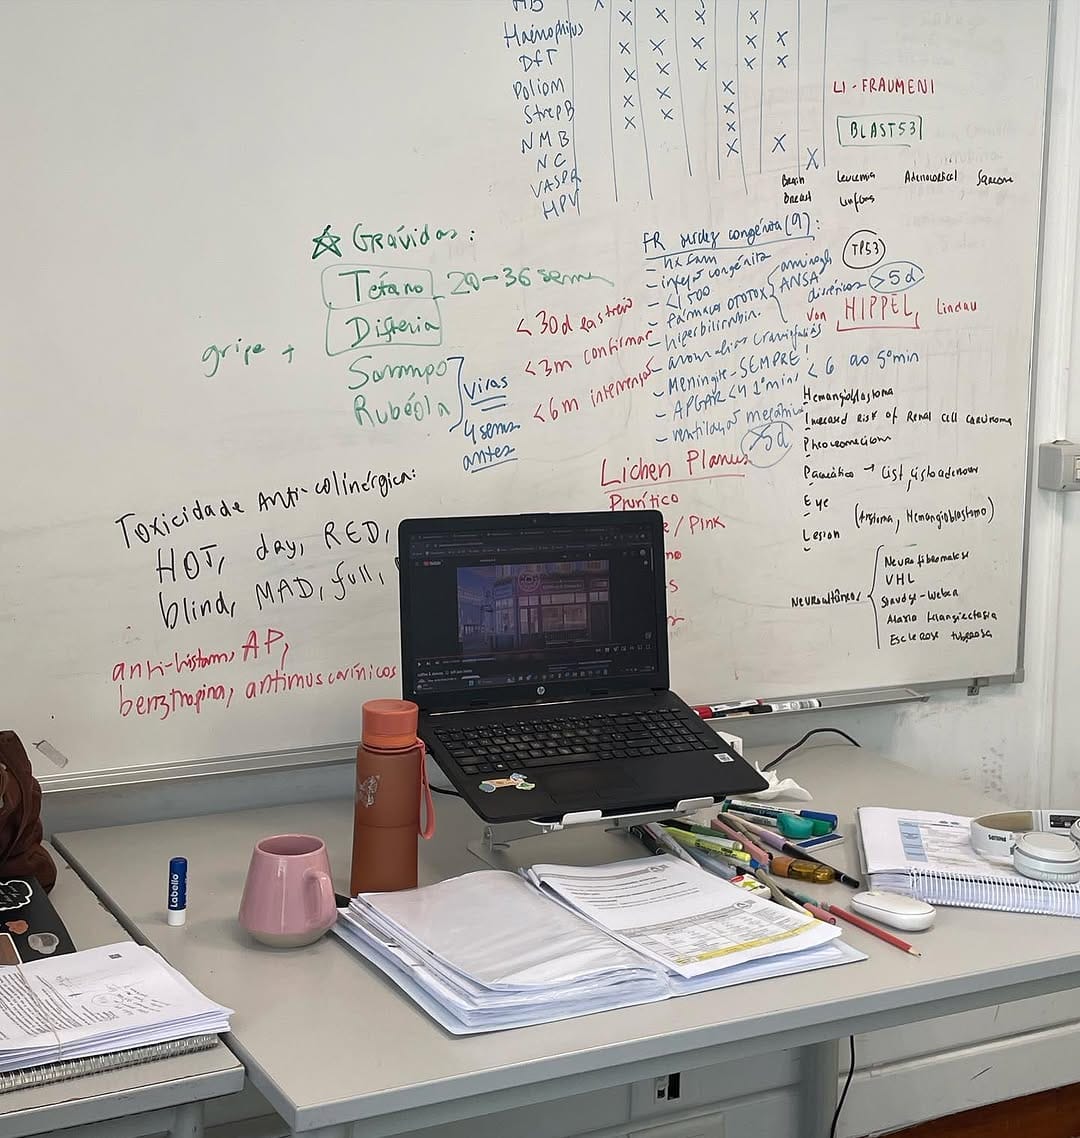 HB
Haemophilus
DfT
Poliom
StrepB
NMB
NC
VASPR
HPV
LI-FRAUMENI
BLAST53
Brain
Breast
Leucemia
Adenocortical
Sarcoma
TP53
☆ Grávidas:
Tétano 20-36 sem
Difteria
gripe +
Sarampo
Rubéola
vivas
4 sems
antes
< 30d rastreio
< 3m confirmar
< 6m intervenção
FR surdez congénita (9):
- hx fam
- infeção congénita
- < 1500
- Fármacos OTOTOX
aminogls
ANSA
diuréticos > 5d
- hiperbilirrubin.
- anomalias craniofaciais
- Meningite - SEMPRE!
- APGAR < 4 1º min / < 6 ao 5º min
- ventilação mecânica
> 5d
Von HIPPEL, Lindau
Hemangioblastoma
Increased risk of Renal cell carcinoma
Pheocromocitom
Pancreático →
Eye
Lesion
(Angioma, Hemangioblastoma)
Neurofibromatose
VHL
Sturdge-Weber
Ataxia telangiectasia
Esclerose tuberosa
Lichen Planus
Prurítico
/ Pink
Toxicidade Anti-colinérgica:
HOT, dry, RED,
blind, MAD, full,
anti-histam, AP,
benztropina, antimuscarínicos
YouTube
hp
Labello